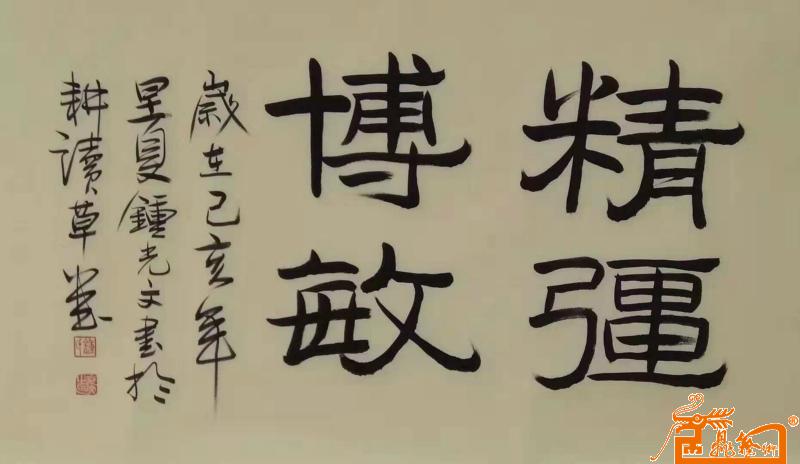 精彊
博敏
歲在己亥年
夏鍾光文書於
耕讀草堂